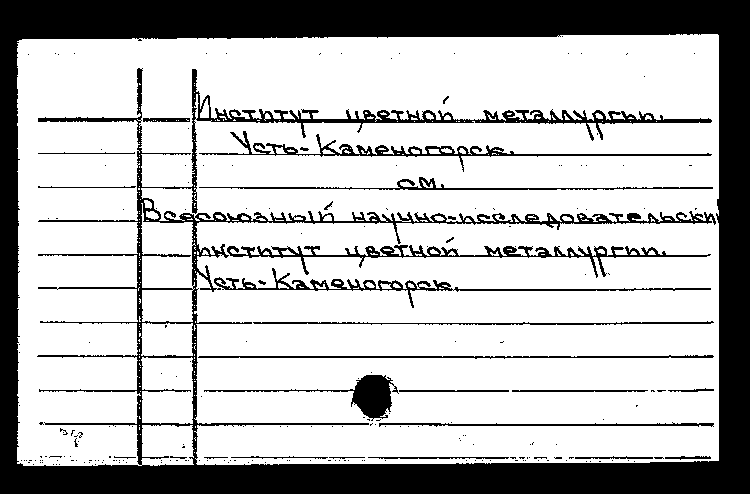 Институт цветной металлургии.
Усть-Каменогорск.
см.
Всесоюзный научно-исследовательский
институт цветной металлургии.
Усть-Каменогорск.